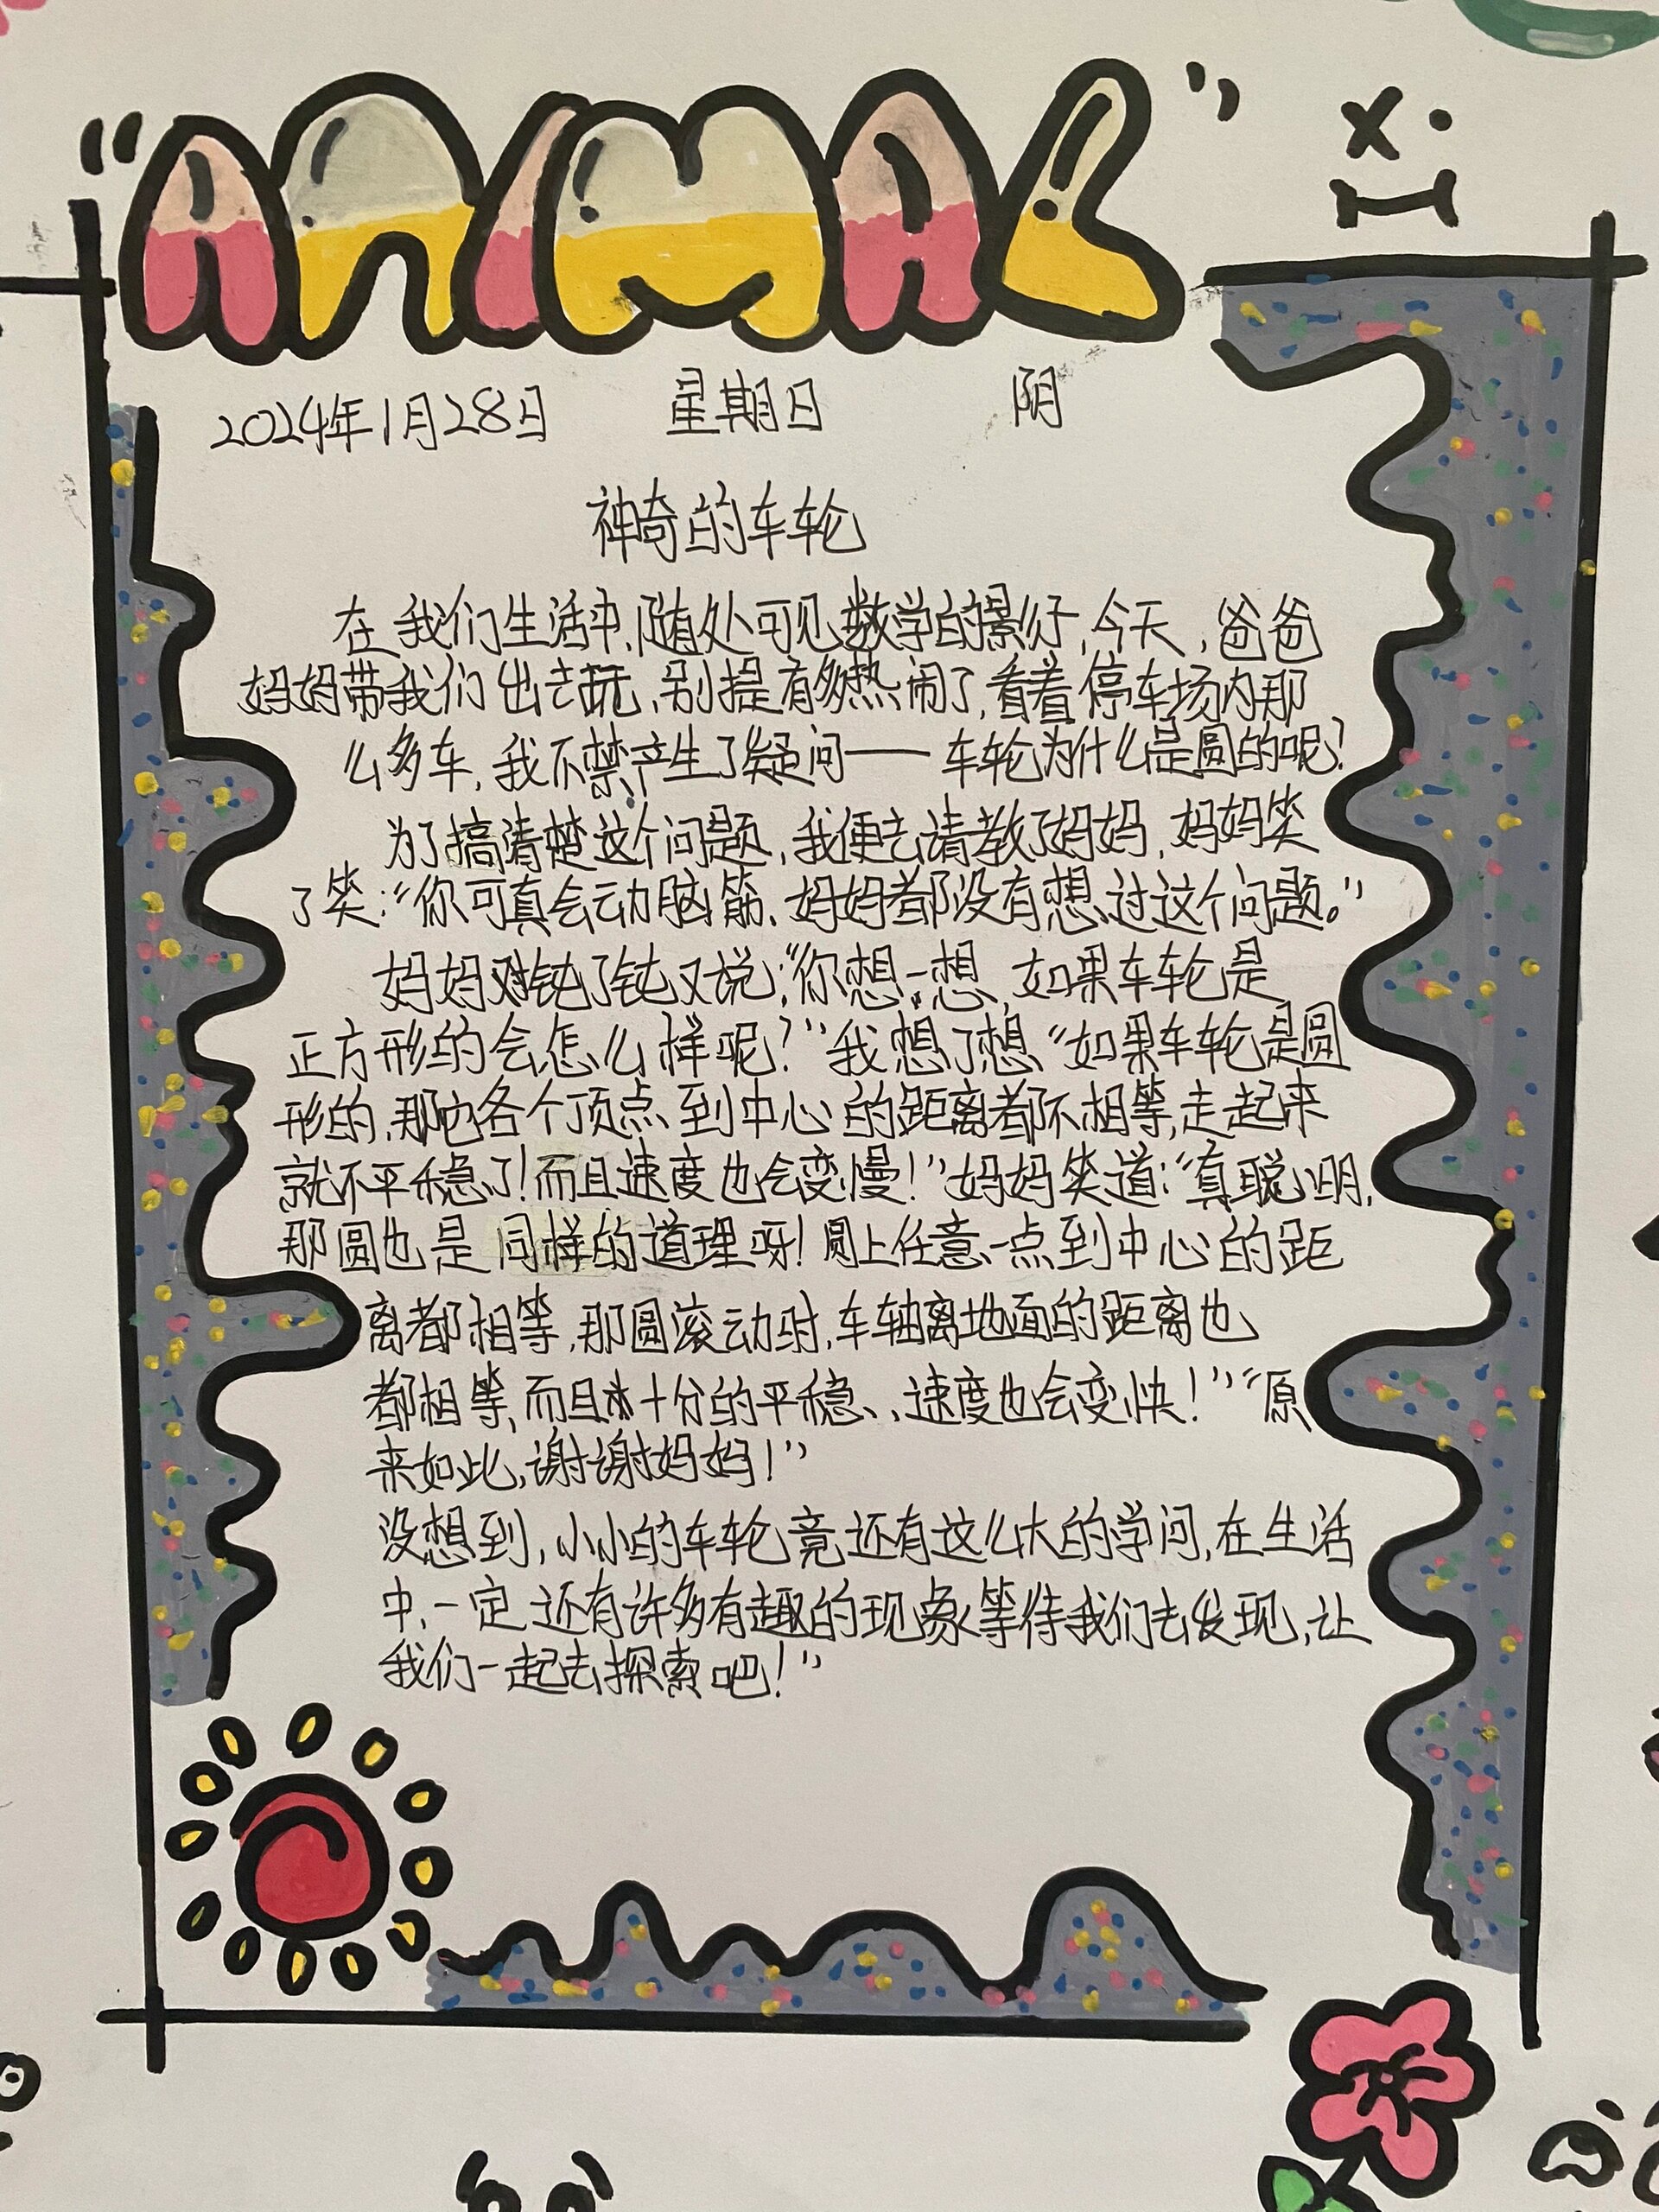 "ANIMAL"
2024年1月28日 星期日 阴
神奇的车轮
在我们生活中,随处可见数学的影子,今天,爸爸
妈妈带我们出去玩,别提有多热闹了,看着停车场内那
么多车,我不禁产生了疑问——车轮为什么是圆的呢?
为了搞清楚这个问题,我便去请教了妈妈,妈妈笑
了笑:“你可真会动脑筋,妈妈都没有想过这个问题。”
妈妈对钝了钝又说:“你想一想,如果车轮是
正方形的会怎么样呢?”我想了想“如果车轮是圆
形的,那它各个顶点到中心的距离都不相等,走起来
就不平稳了!而且速度也会变慢!”妈妈笑道:“真聪明,
那圆也是同样的道理呀!圆上任意一点到中心的距
离都相等,那圆滚动时,车轴离地面的距离也
都相等,而且十分的平稳,速度也会变快!”“原
来如此,谢谢妈妈!”
没想到,小小的车轮竟还有这么大的学问,在生活
中,一定还有许多有趣的现象等待我们去发现,让
我们一起去探索吧!”